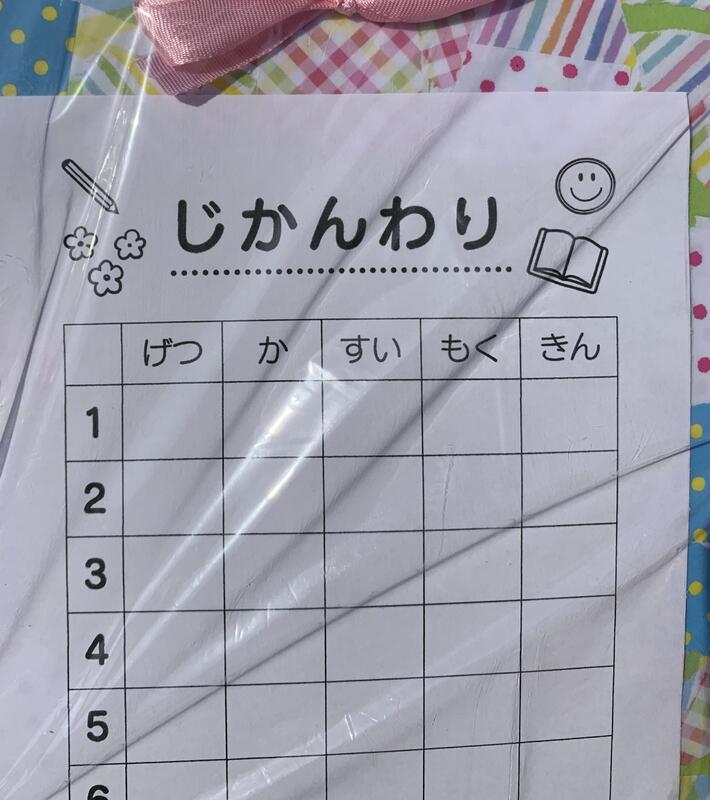 じかんわり
げつ か すい もく きん
1
2
3
4
5
6